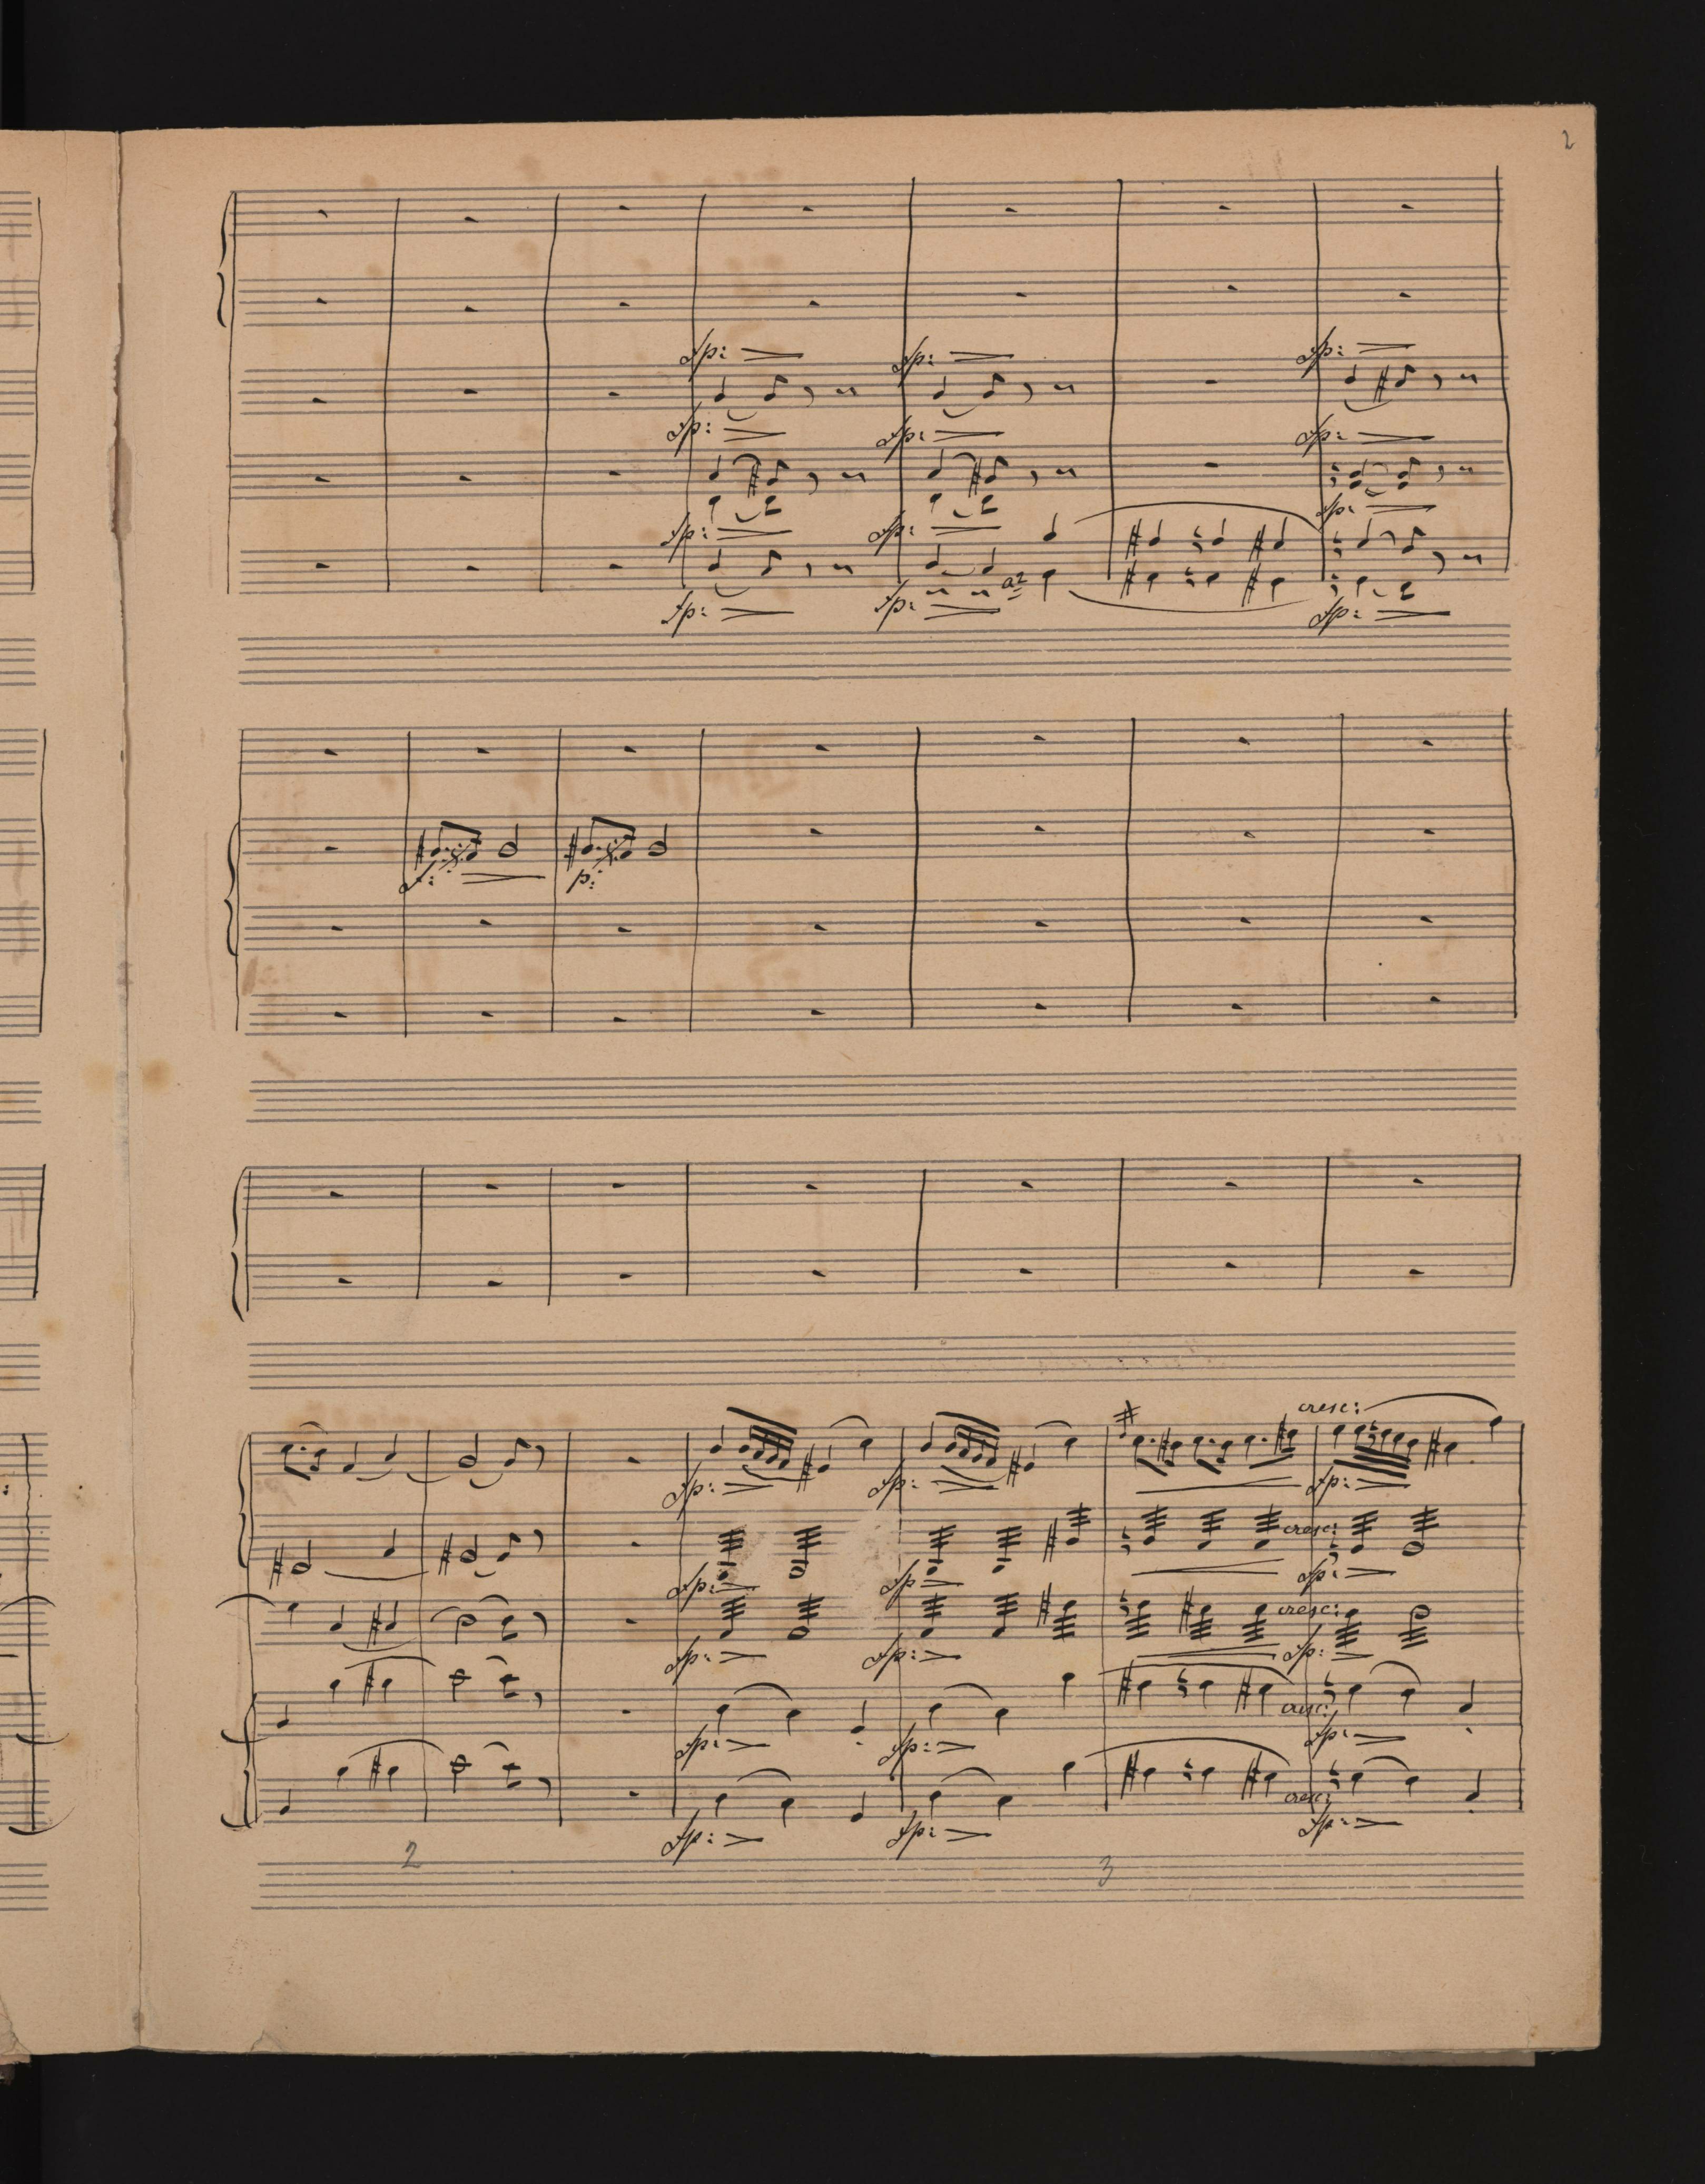 2
fp: fp: fp:
fp: fp: fp:
fp: fp: fp:
a2
fp: fp: fp:
p:
cresc:
fp: fp: fp:
cresc:
fp: fp fp:
cresc:
fp: fp: fp:
cresc:
fp: fp: fp:
cresc:
fp: fp: fp:
2 3